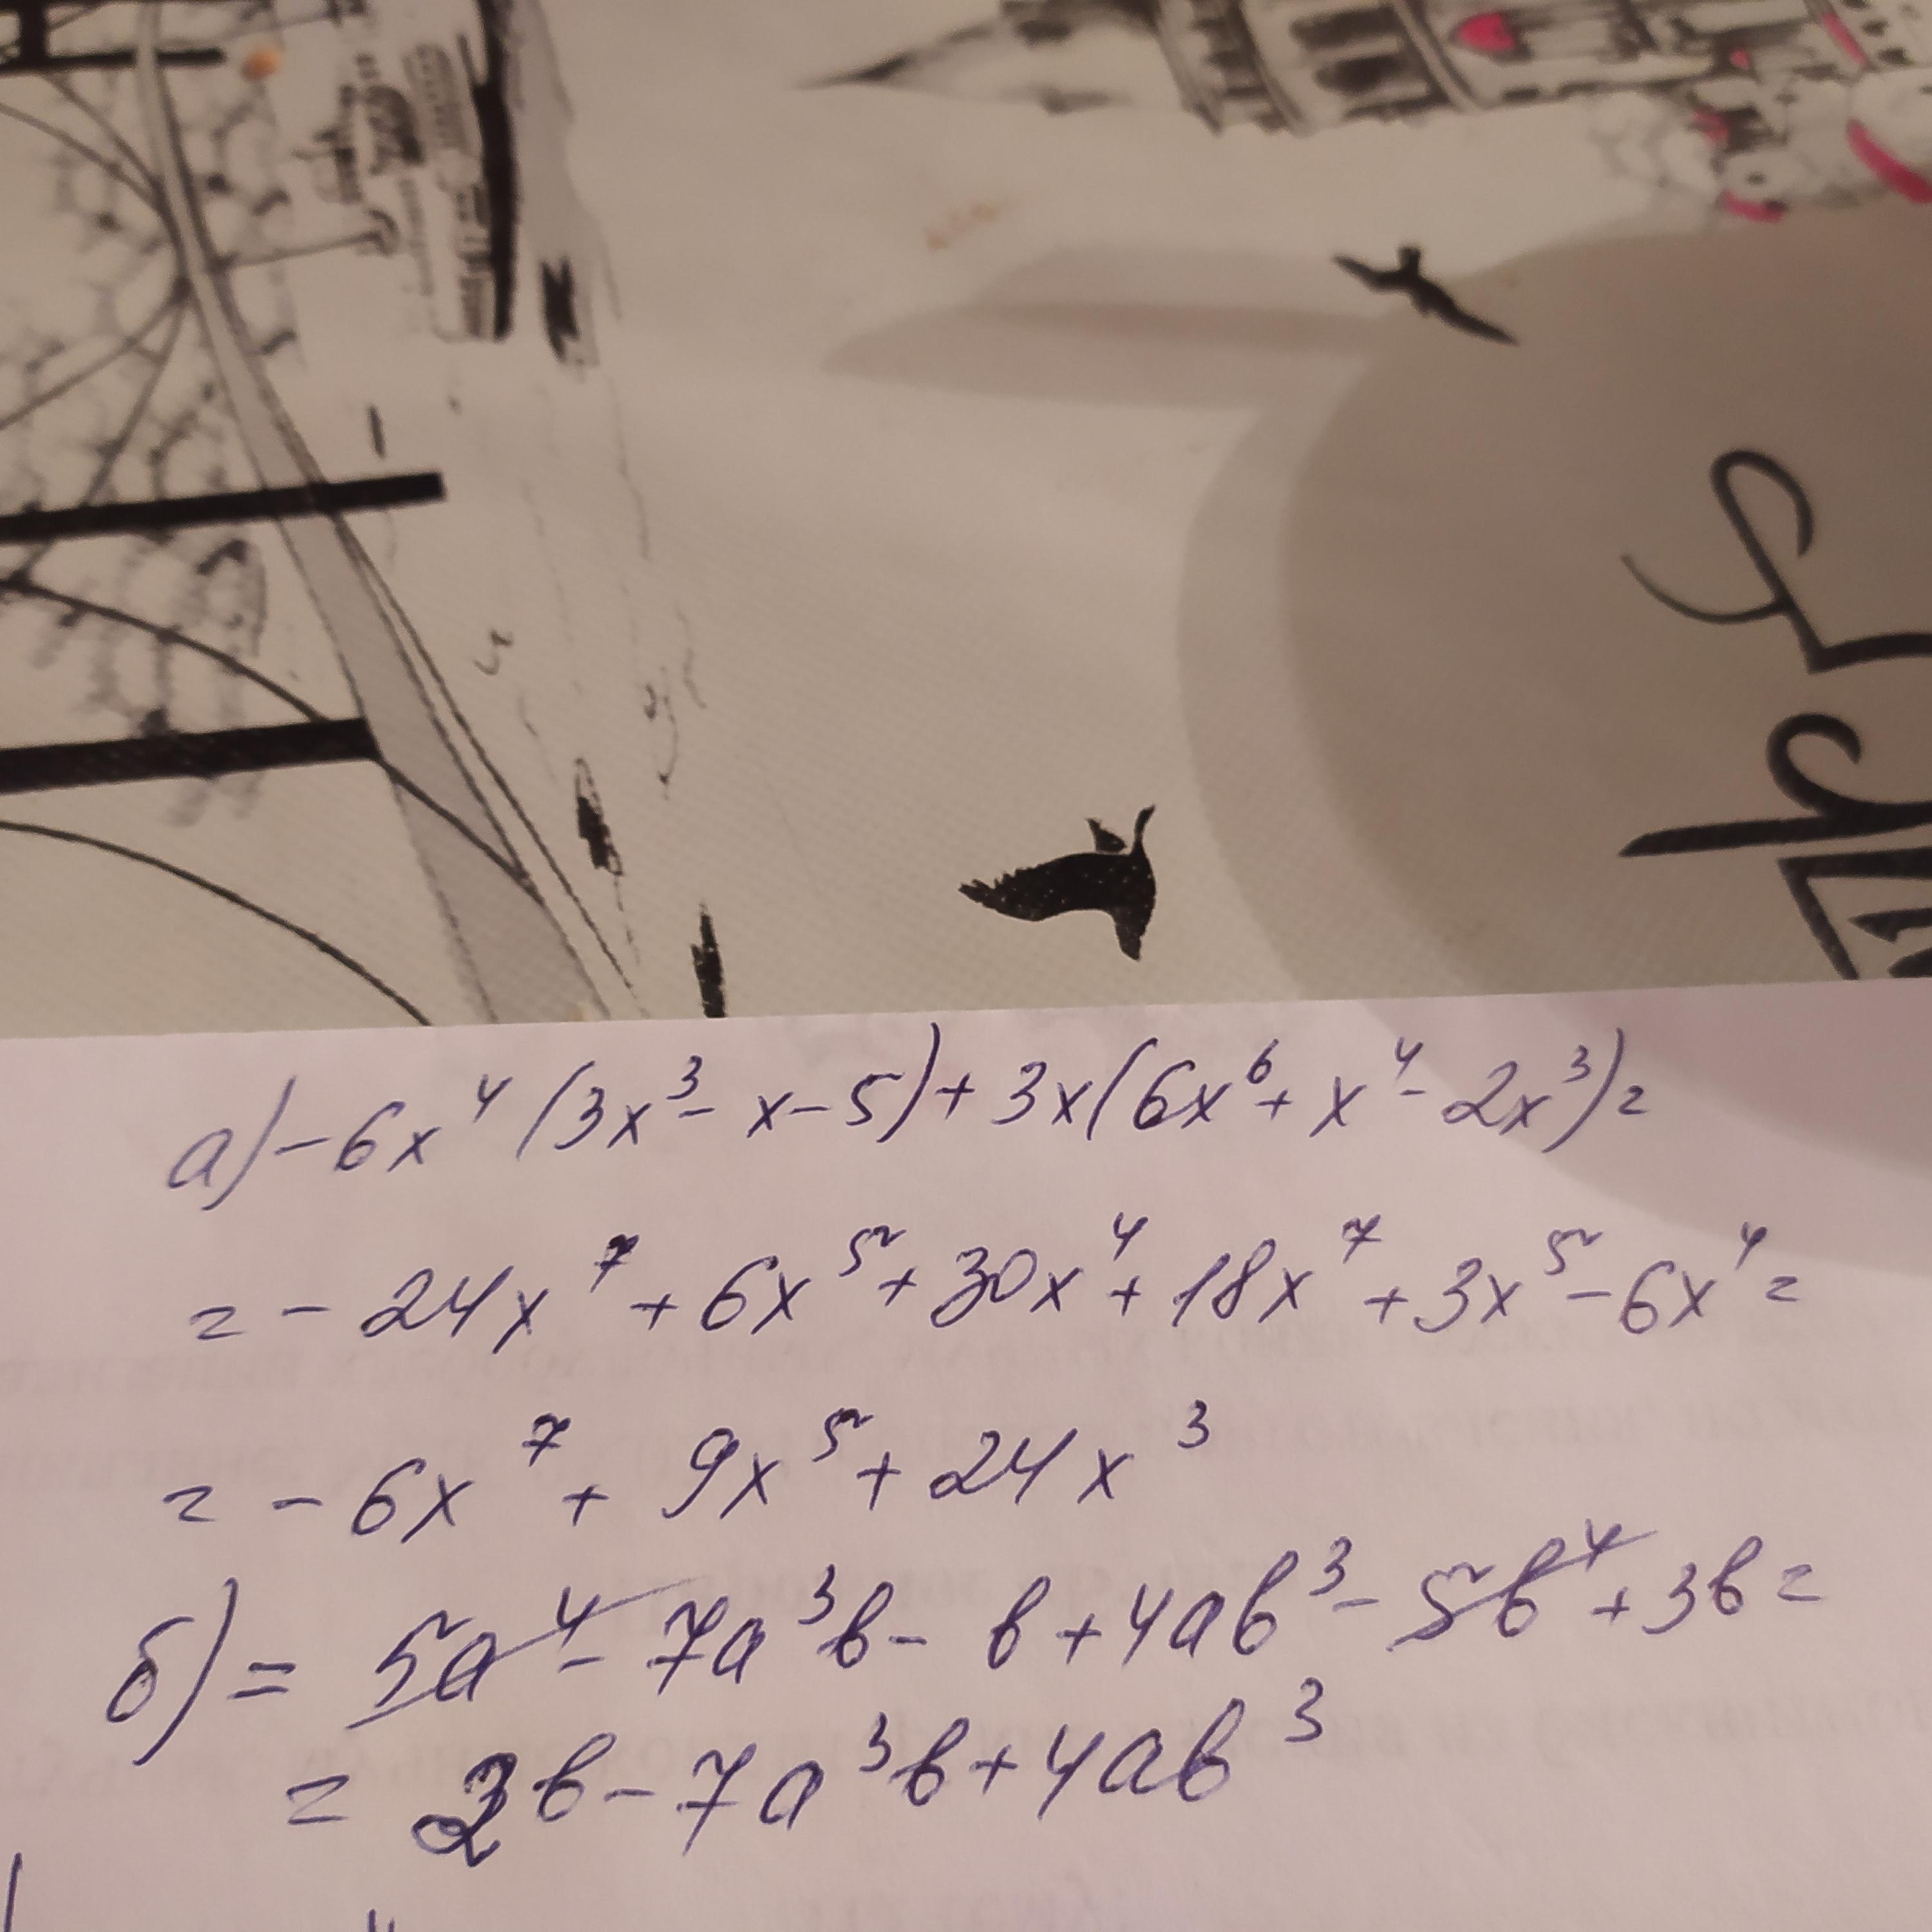 а) - 6x⁴ (3x³ - x - 5) + 3x(6x⁶ + x⁴ - 2x³) =
= - 24x⁷ + 6x⁵ + 30x⁴ + 18x⁷ + 3x⁵ - 6x⁴ =
= - 6x⁷ + 9x⁵ + 24x³
б) = 5a⁴ - 7a³b - b + 4ab³ - 5b⁴ + 3b =
= 2b - 7a³b + 4ab³